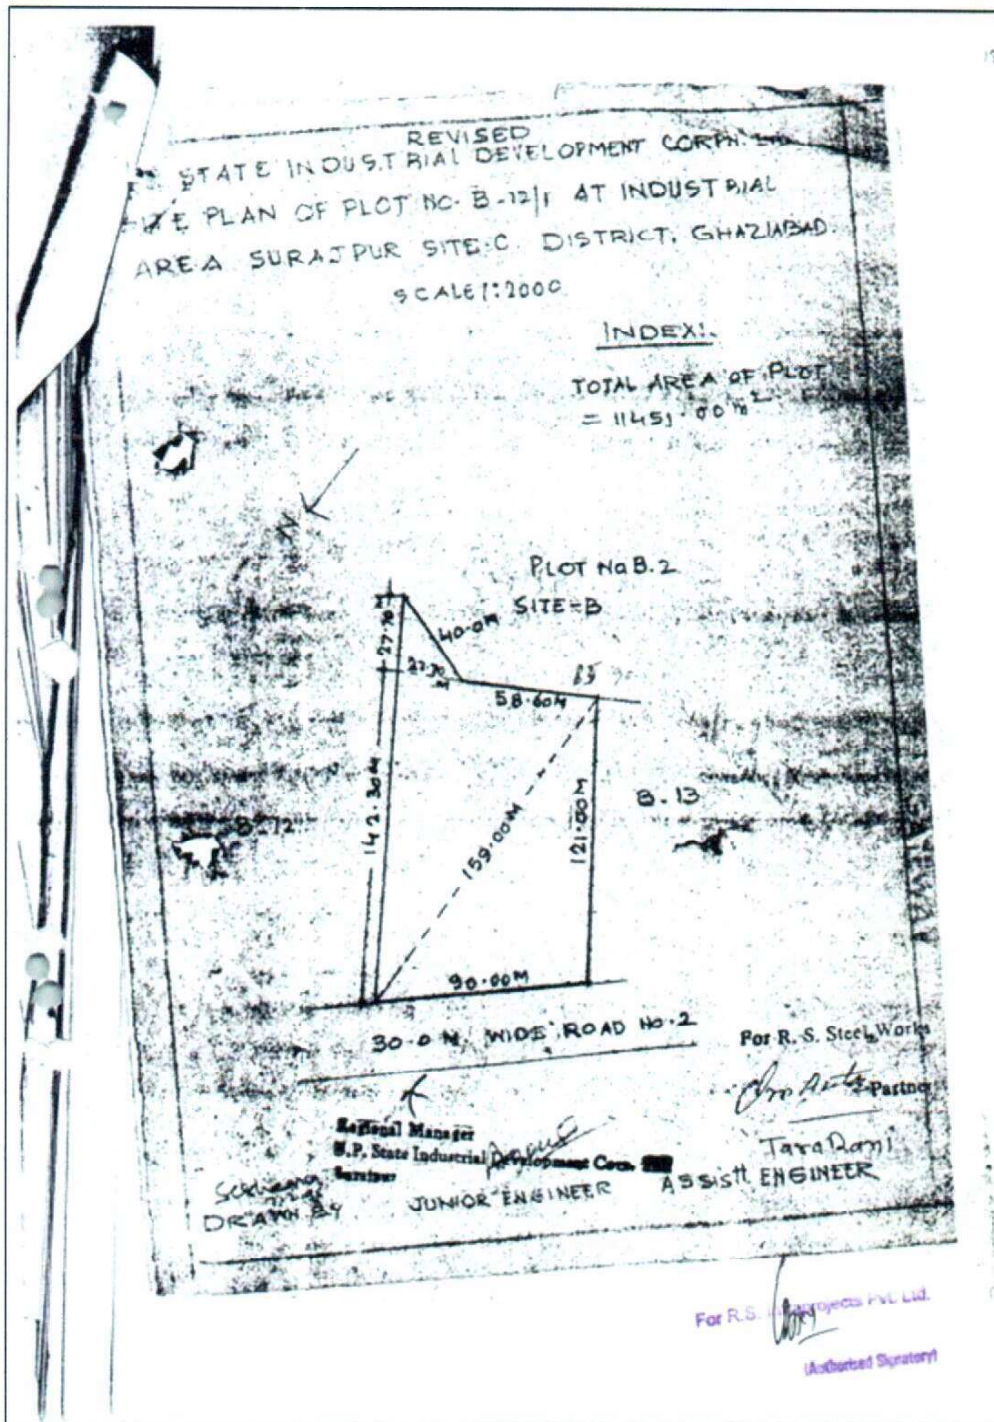 REVISED
STATE INDUSTRIAL DEVELOPMENT CORPN.
PLAN OF PLOT NO. B-12/1 AT INDUSTRIAL
AREA SURAJPUR SITE-C. DISTRICT, GHAZIABAD.
SCALE 1:2000
INDEX:-
TOTAL AREA OF PLOT
= 11451.00 m²
N
PLOT No B.2
SITE=B
40.0M
27.70 M
27.70 M
65 90
58.60M
142.30M
159.00M
121.00M
B-12
B-13
RAILWAY
90.00M
30.0 M. WIDE ROAD NO.2
For R. S. Steel Works
Partner
Regional Manager
U.P. State Industrial Development Corn.
Surajpur
Tara Rani
JUNIOR ENGINEER
ASSISTT. ENGINEER
DRAWN BY
For R.S. Infraprojects Pvt. Ltd.
(Authorised Signatory)